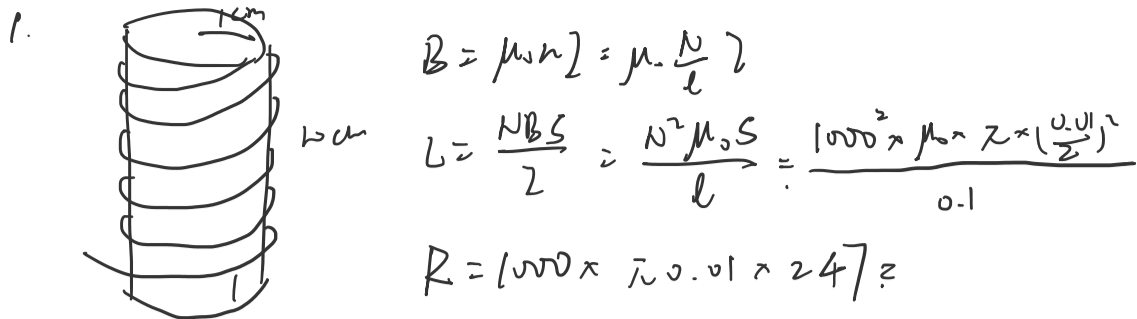 1.
1cm
10cm
B = μ₀nI = μ₀ \frac{N}{l} I
L = \frac{NBS}{I} = \frac{N²μ₀S}{l} = \frac{1000² × μ₀ × π × (\frac{0.01}{2})²}{0.1}
R = 1000 × π 0.01 × 247 =